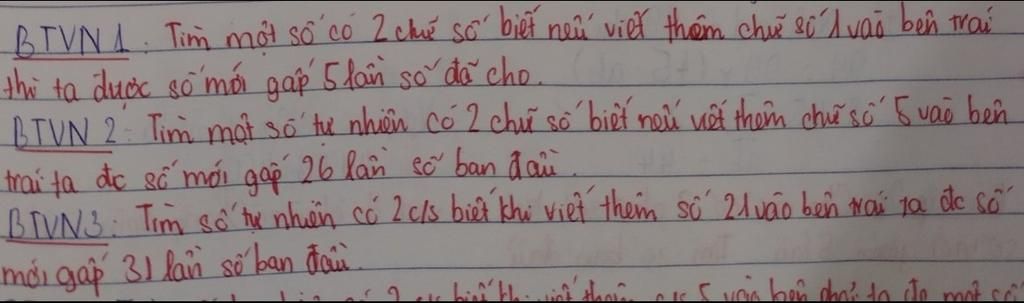 BTVN 1: Tìm một số có 2 chữ số biết nếu viết thêm chữ số 1 vào bên trái
thì ta được số mới gấp 5 lần số đã cho.
BTVN 2: Tìm một số tự nhiên có 2 chữ số biết nếu viết thêm chữ số 5 vào bên
trái ta đc số mới gấp 26 lần số ban đầu.
BTVN3: Tìm số tự nhiên có 2 c/s biết khi viết thêm số 21 vào bên trái ta đc số
mới gấp 31 lần số ban đầu.
2 c/s biết kh viết thêm c/s 5 vào bên phải ta đc một số